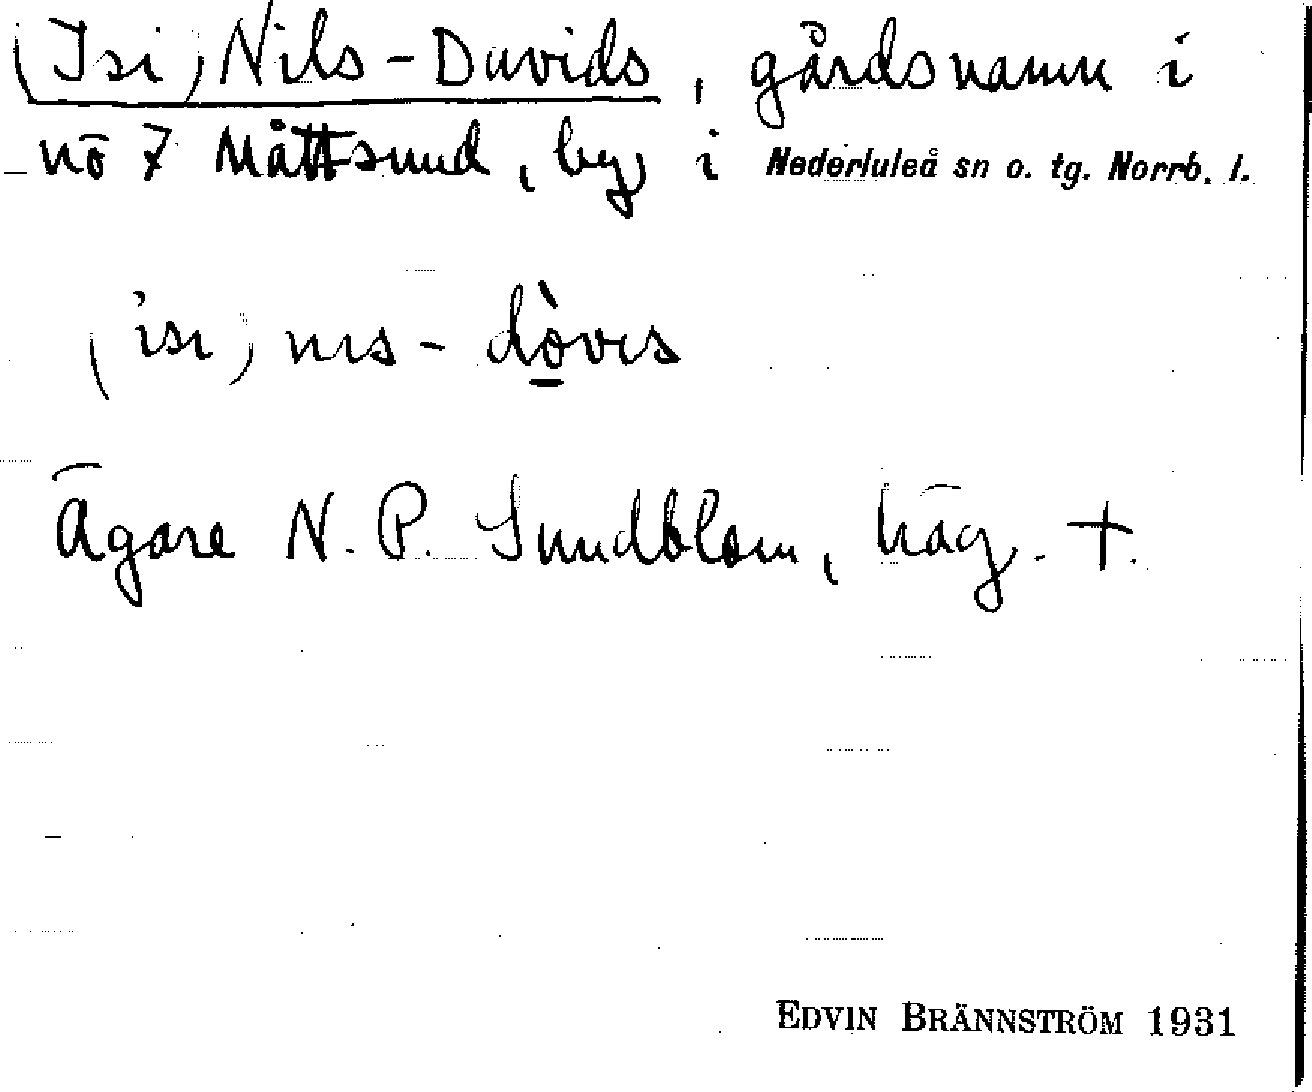 (Isi) Nils-Davids, gårdsnamn i
nō 7 Måttsund, by i Nederluleå sn o. tg. Norrb. l.
(ìsı) nıs-dòvıs
Ägare N. P. Sundblom, häg. +.
EDVIN BRÄNNSTRÖM 1931